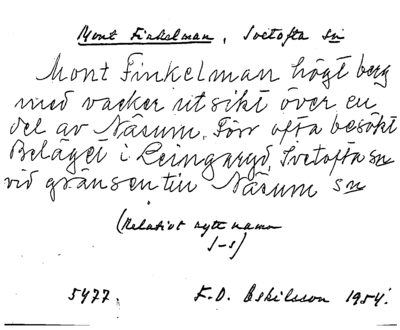 Mont Finkelman, Ivetofta sn
Mont Finkelman högt berg
med vacker utsikt över en
del av Näsum. Förr ofta besökt
Beläget i Leingaryd, Ivetofta sn
vid gränsen till Näsum sn
(Relativt nytt namn
J-s)
5477. F.D. Eskilsson 1954.